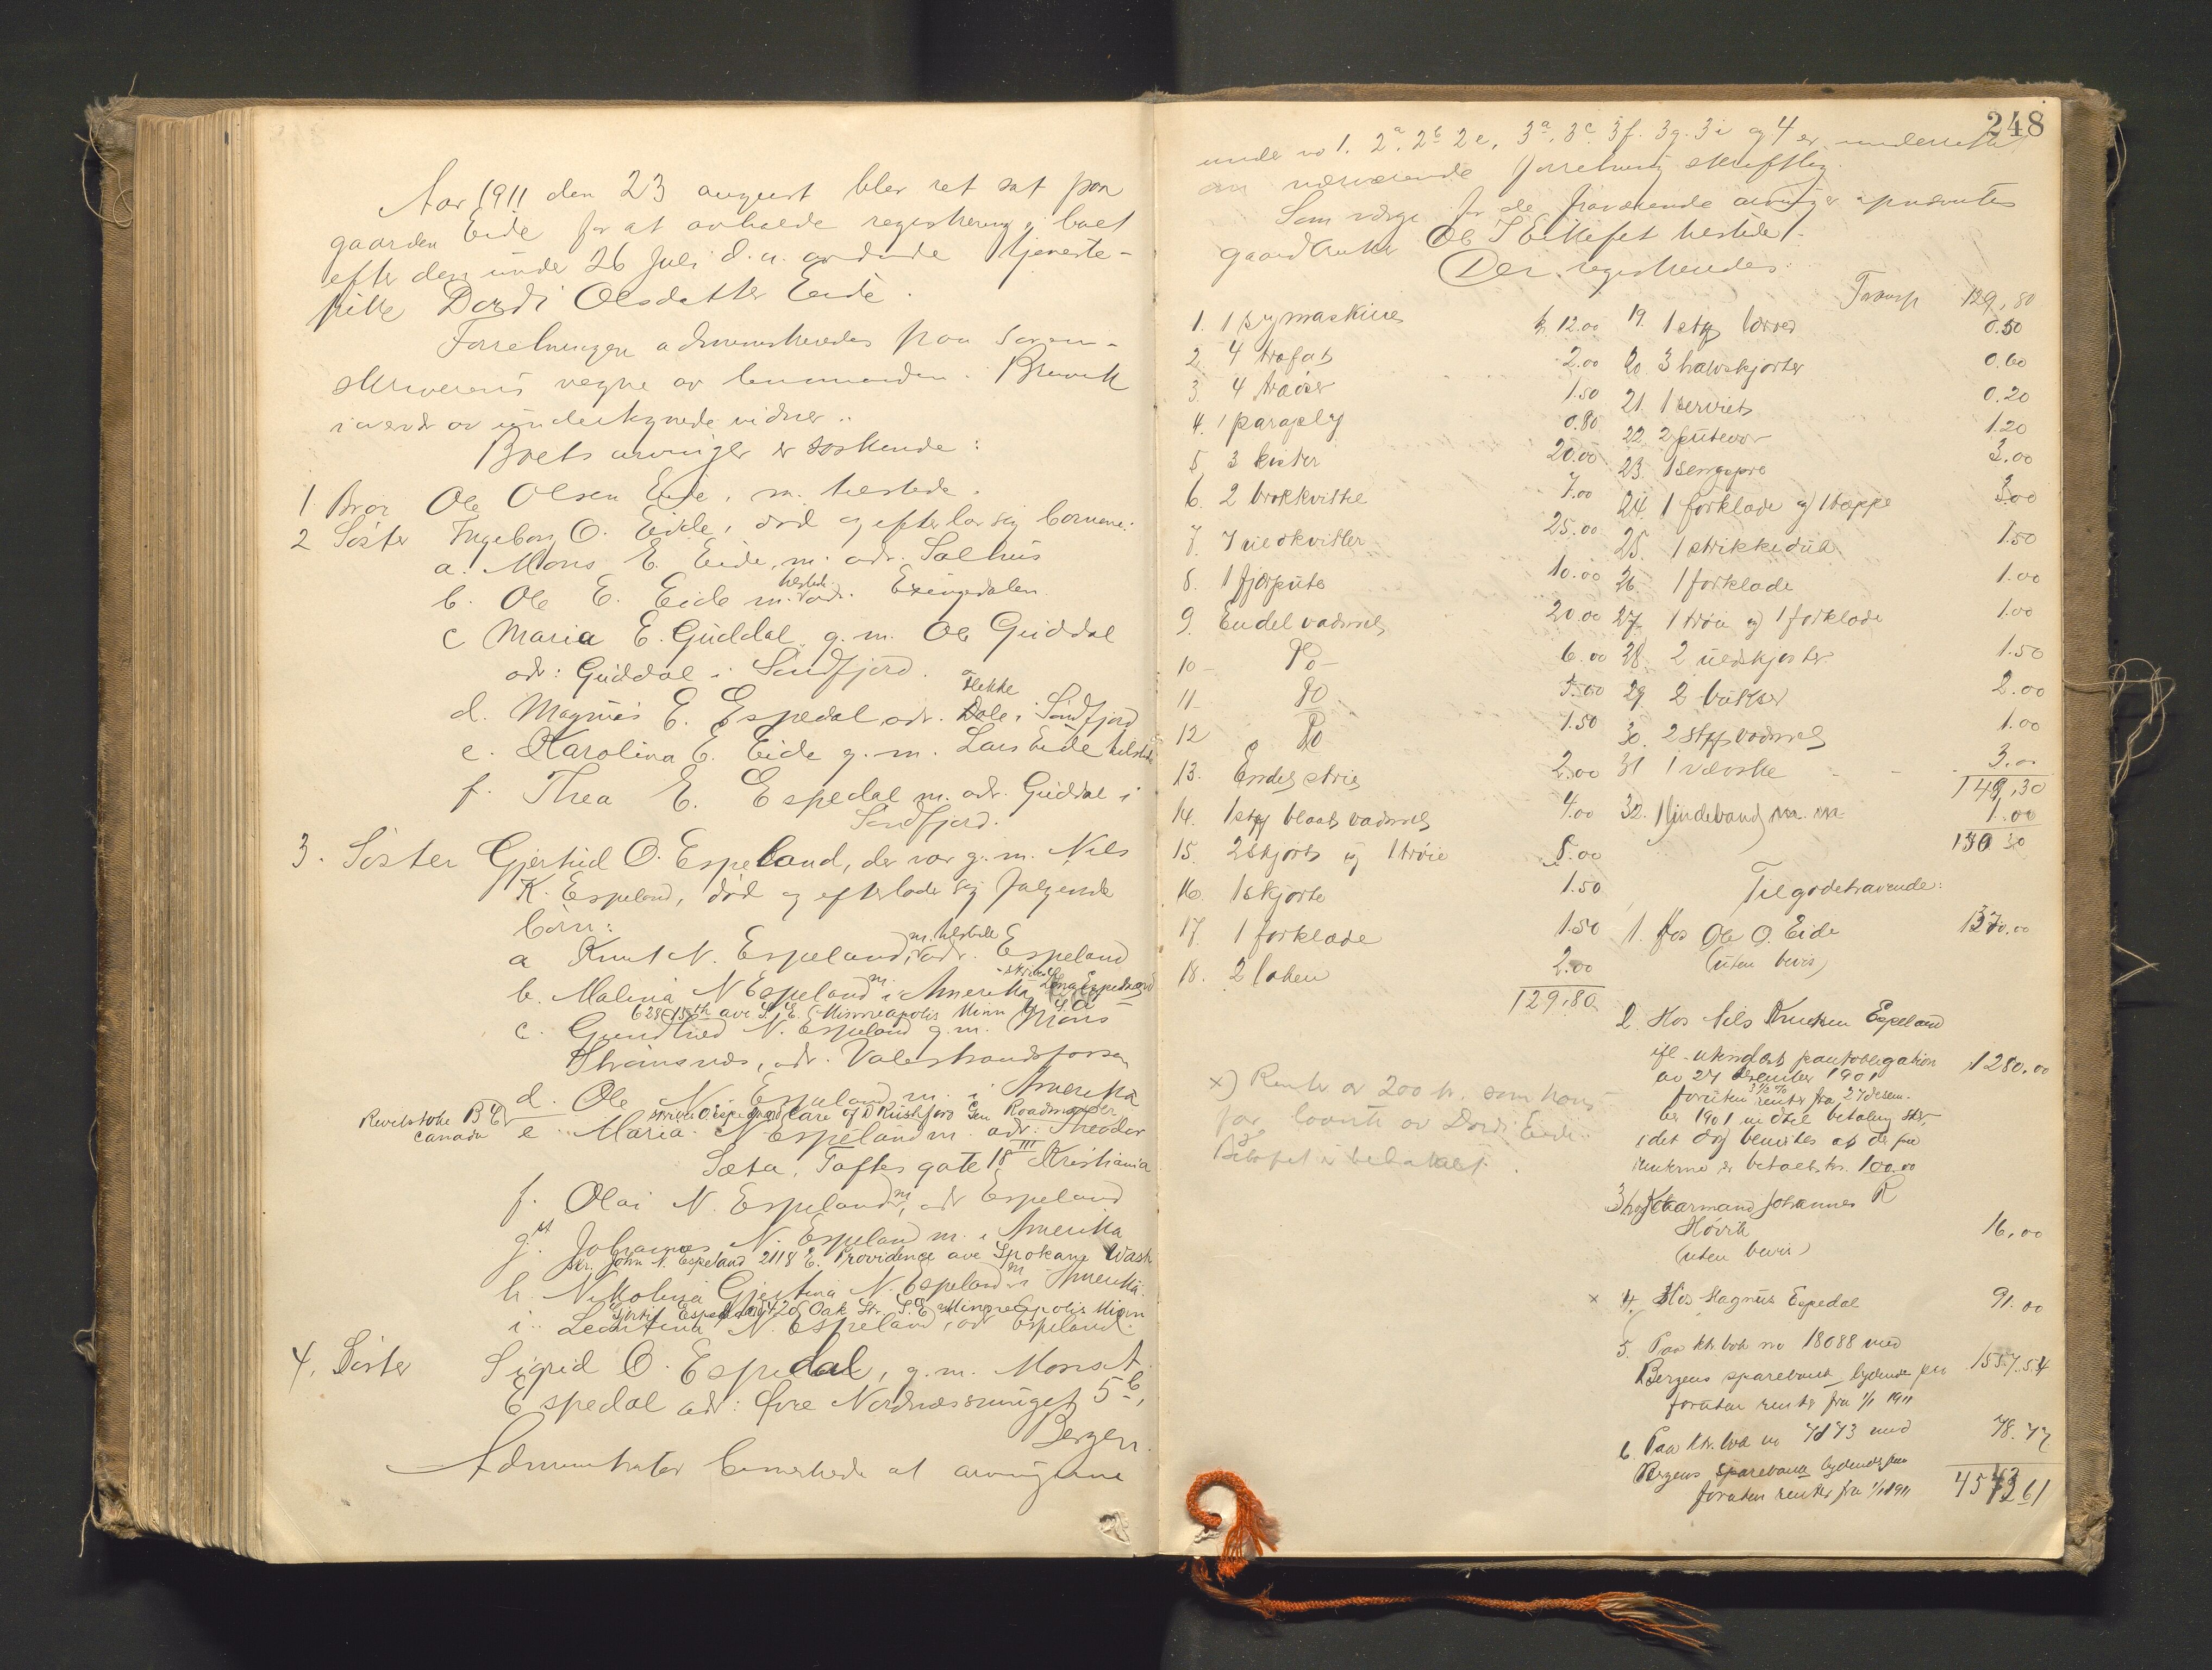 Aar 1911 den 23 august blev ret sat paa
gaarden Eide for at avholde registrering i boet
efter den under 26 Juli d.a. avdøde tjeneste-
pike Dordi Olsdatter Eide.
Forretningen administreredes paa Soren-
skriverens vegne av lensmanden Brevik
i overvær av undertegnede vidner..
Boets arvinger er søskende:
1 Bror Ole Olsen Eide, m. herstede.
2 Søster Ingeborg O. Eide, død og efterlar sig børnene:
a. Mons E. Eide, m. adr. Salhus
b. Ole E. Eide m. herstede adr. Exingedalen
c Maria E. Guddal g. m. Ole Guddal
adr: Guddal i Søndfjord.
d. Magnus E. Espedal adr. Dale i Søndfjord
Flekke
e. Karolina E. Eide g. m. Lars Eide herstede
f. Thea E. Espedal m. adr. Guddal i
Søndfjord.
3. Søster Gjertrud O. Espeland, der var g. m. Nils
K. Espeland, død og efterlader sig følgende
børn:
a Knut N. Espeland, m. herstede adr. Espeland
b. Malena N Espeland m. i Amerika
628 15th ave S. E. Minneapolis Minn U. S. A.
c. Gundhild N. Espeland g. m. Mons
Strømsnes, adr. Valestrandsfossen
d. Ole N. Espeland m. i Amerika
care of D Rushforo Gen Roadmaster
Revelstoke B C
Canada
e Maria N Espeland m. adr: Theodor
Sæta, Toftes gate 18 III Kristiania
f. Olai N. Espeland m, adr Espeland
g. Johannes N. Espeland m. i Amerika
adr. John N. Espeland 2118 E. Providence ave Spokane Wash
h. Nikolina Gjertina N. Espeland m i Amerika
420 Oak Str. S. E. Minneapolis Minn
i. Leontina N. Espeland, adr Espeland.
4. Søster Sigrid O. Espedal, g. m. Mons A.
Espedal adr: Øvre Nordnæssmuget 5 b,
Bergen.
Administrator bemerkede at arvingerne
248
under no 1. 2a. 2b 2e, 3a. 3c. 3f. 3g. 3i og 4 er underrettet
om nærværende forretning skriftlig.
Som værge for de fraværende arvinger opnævntes
gaardbruker Ole I Eikefet herstede.
Der registreredes:
1. 1 symaskine kr 12.00
2. 4 trøfat 2.00
3. 4 traøser 1.50
4. 1 paraply 0.80
5. 3 kister 20.00
6. 2 brokkvitle 7.00
7. 7 uldkvitler 25.00
8. 1 fjærpute 10.00
9. Endel vadmel 20.00
10 - Do - 6.00
11 - Do 5.00
12 Do 1.50
13. Endel strie 2.00
14. 1 stk blaat vadmel 4.00
15. 2 skjort og 1 trøie 5.00
16. 1 skjorte 1.50
17. 1 forklæde 1.50
18. 2 laken 2.00
129.80
x) Rente av 200 kr. som hans
far laante av Dordi Eide.
Beløpet er betalt.
Transp 129,80
19. 1 stk lærred 0.50
20. 3 halvskjorter 0.60
21. 1 serviet 0.20
22. 2 putevar 1.20
23. 1 sengspre 3.00
24. 1 forklæde og 1 tæppe 3.00
25. 1 strikkedug 1.50
26. 1 forklæde 1.00
27. 1 trøie og 1 forklæde 1.00
28. 2 uldskjorter 1.50
29. 2 bukser 2.00
30. 2 stk vadmel 1.00
31 1 vævske 3.00
149,30
32. 1 lindeband m. m. 1.00
150 30
Tilgodehavende:
1. Hos Ole O. Eide 1370.00
(uten bevis)
2. Hos Nils Knutsen Espeland
ifl. utstedt pantobligation
av 27 desember 1901 1280.00
foruten 3½ % renter fra 27 desem-
ber 1901 indtil betaling sker,
idet dog bemerkes at der paa
renterne er betalt kr. 100.00
3 hos Kaarmand Johannes R
Hovik 16.00
(uten bevis)
x 4. Hos Magnus Espedal 91.00
5. Paa ktr. bok no 18088 med
Bergens sparebank lydende paa 1557.54
foruten renter fra 1/1 1911
6 Paa ktr. bok no 7873 med 78.77
Bergens sparebank lydende paa
foruten renter fra 1/1 1911 4543 61